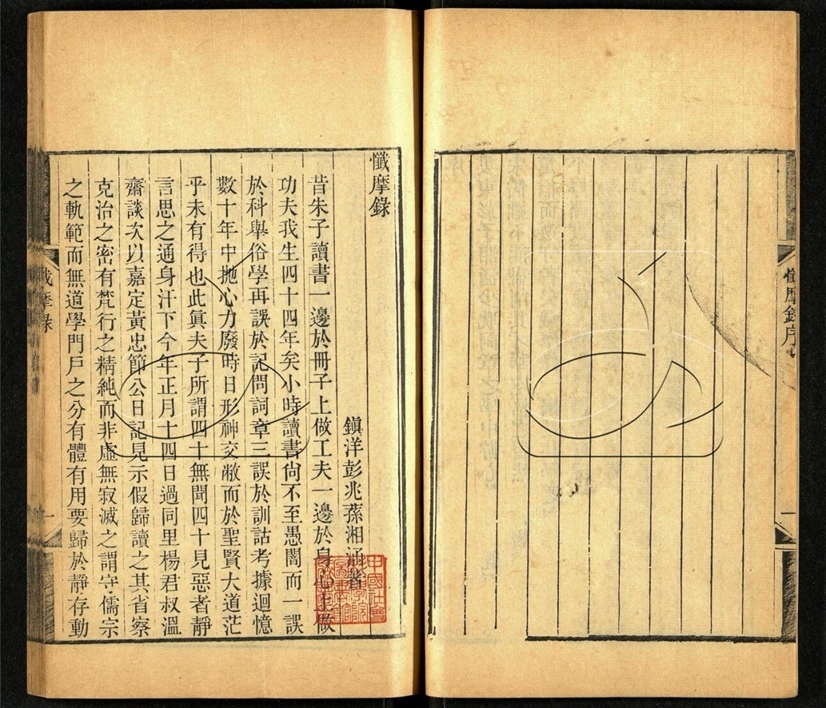 懺摩錄序
懺摩錄
鎮洋彭兆蓀湘涵著
昔朱子讀書一邊於冊子上做工夫一邊於身心上做
功夫我生四十四年矣小時讀書尙不至愚闇而一誤
於科舉俗學再誤於記問詞章三誤於訓詁考據迴憶
數十年中拋心力廢時日形神交敝而於聖賢大道茫
乎未有得也此眞夫子所謂四十無聞四十見惡者靜
言思之通身汗下今年正月十四日過同里楊君叔溫
齋談次以嘉定黃忠節公日記見示假歸讀之其省察
克治之密有梵行之精純而非虛無寂滅之謂守儒宗
之軌範而無道學門戶之分有體有用要歸於靜存動
懺摩錄
一